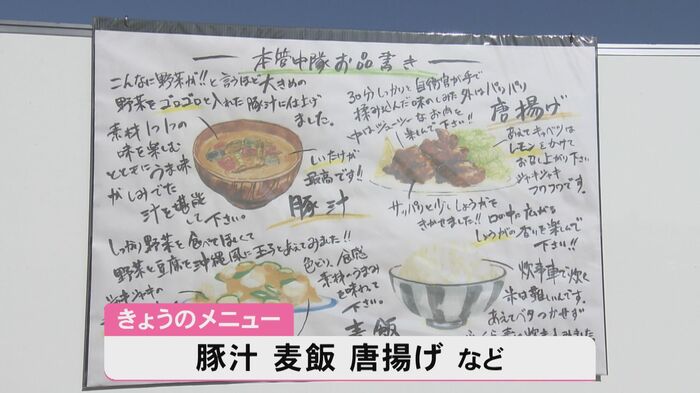 本管中隊お品書き
こんなに野菜が!!と言うほど大きめの
野菜をゴロゴロと入れた豚汁に仕上げ
ました。
素材1つ1つの
味を楽しむ
とともにうま味
がしみでた
汁を堪能
して下さい。
しいたけが
最高です!!
豚汁
30分しっかりと自衛官が手で
揉み込んだ味のしみた外はパリパリ
中はジューシーなお肉を
楽しんで下さい!!
唐揚げ
あえてキャベツは
レモンをかけて
お召し上がり下さい
シャキシャキ
フワフワです。
サッパリと少ししょうがを
きかせました!!口の中に広がる
しょうがの香りを楽しんで
下さい!!
しっかり野菜を食べてほしくて
野菜と豆腐を沖縄風に玉子とあえてみました!!
シャキシャキの
色どり、食感
素材のうまみ
を味わって
下さい。
麦飯
炊事車で炊く
米は難しいんです。
あえてベタつかせず
きょうのメニュー
豚汁 麦飯 唐揚げ など